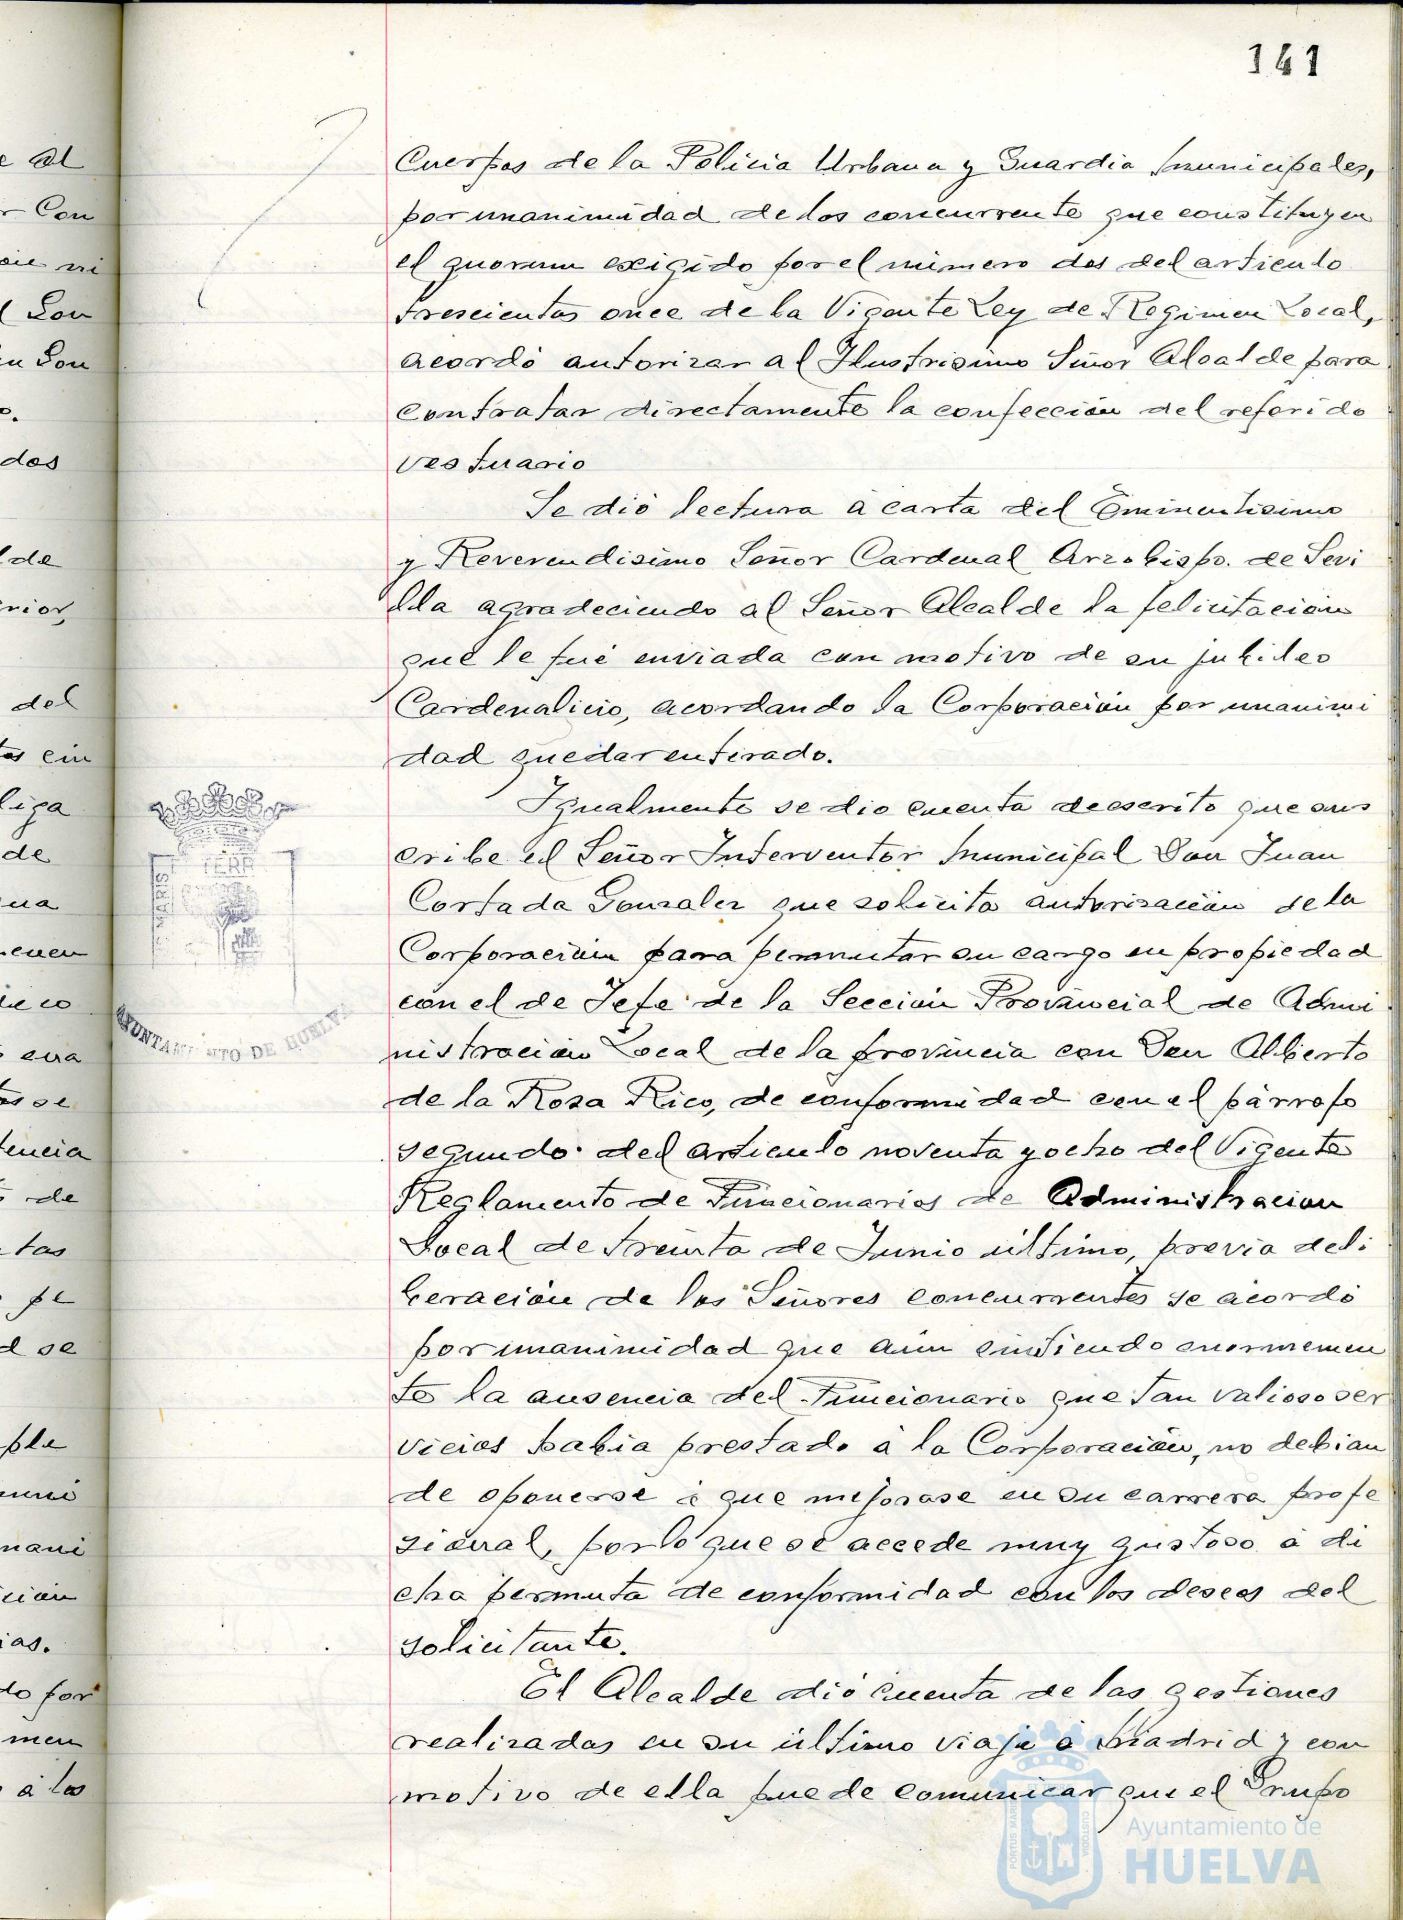 141
Cuerpos de la Policia Urbana y Guardia Municipales,
por unanimidad de los concurrente que constituyen
el quorum exigido por el número dos del articulo
trescientos once de la Vigente Ley de Regimen Local,
acordó autorizar al Ilustrisimo Señor Alcalde para
contratar directamente la confección del referido
vestuario
Se dió lectura á carta del Eminentisimo
y Reverendisimo Señor Cardenal Arzobispo. de Sevi
lla agradeciendo al Señor Alcalde la felicitación
que le fué enviada con motivo de su jubileo
Cardenalicio, acordando la Corporación por unanimi
dad quedar enterado.
Igualmente se dio cuenta de escrito que sus
cribe el Señor Interventor Municipal Don Juan
Cortada Gonzalez que solicita autorización de la
Corporación para permutar su cargo en propiedad
con el de Jefe de la Sección Provincial de Admi
nistración Local de la provincia con Don Alberto
de la Rosa Rico, de conformidad con el párrafo
segundo del articulo noventa y ocho del Vigente
Reglamento de Funcionarios de Administracion
Local de treinta de Junio último, previa deli
beración de los Señores concurrentes se acordó
por unanimidad que aun sintiendo enormemen
te la ausencia del Funcionario que tan valioso ser
vicios habia prestado á la Corporación, no debian
de oponerse á que mejorase en su carrera profe
sional, por lo que se accede muy gustoso á di
cha permuta de conformidad con los deseos del
solicitante.
El Alcalde dió cuenta de las gestiones
realizadas en su último viaje á Madrid y con
motivo de ella puede comunicar que el Grupo
e al
r Con
ni
Don
Don
dos
de
rior,
del
tos cin
liga
de
ua
era
se
tencia
de
tas
pe
d se
ple
muni
nani
ción
ias.
do por
men
á los
TERR
AYUNTAMIENTO DE HUELVA
PORTUS MARIS
CUSTODIA
Ayuntamiento de
HUELVA